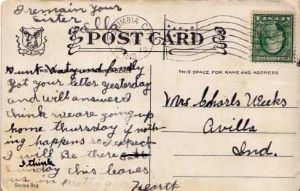 I remain your
Sister
POST CARD
THIS SPACE FOR NAME AND ADDRESS ONLY
Aunt Katy and family
Got your letter yesterday
and will answer I
think we are going up
home Thursday if noth-
ing happens so I expect
I will be there
I think
Sunday this leaves
us in
Mrs Charls Weeks
Avilla
Ind.